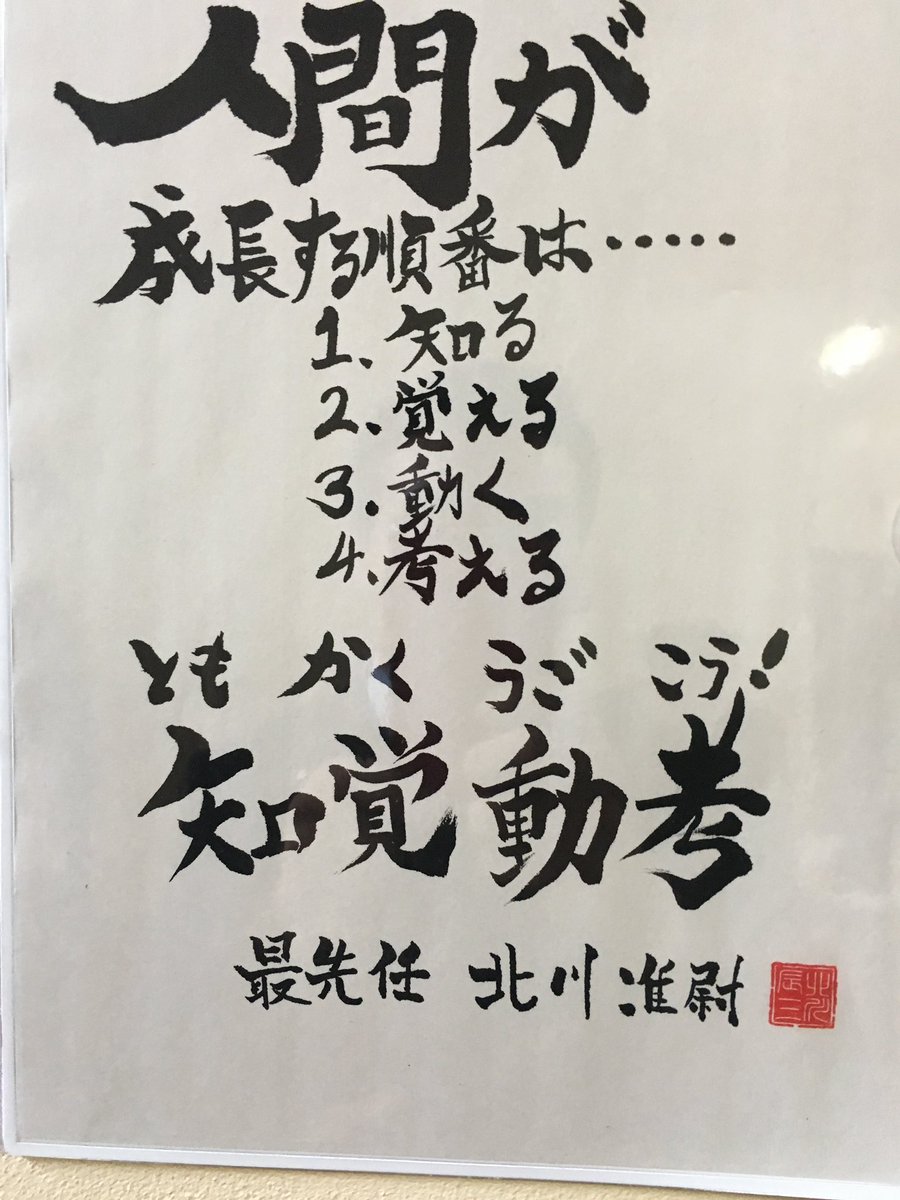 人間が
成長する順番は・・・・・
1.知る
2.覚える
3.動く
4.考える
とも かく うご こう!
知覚動考
最先任 北川 准尉